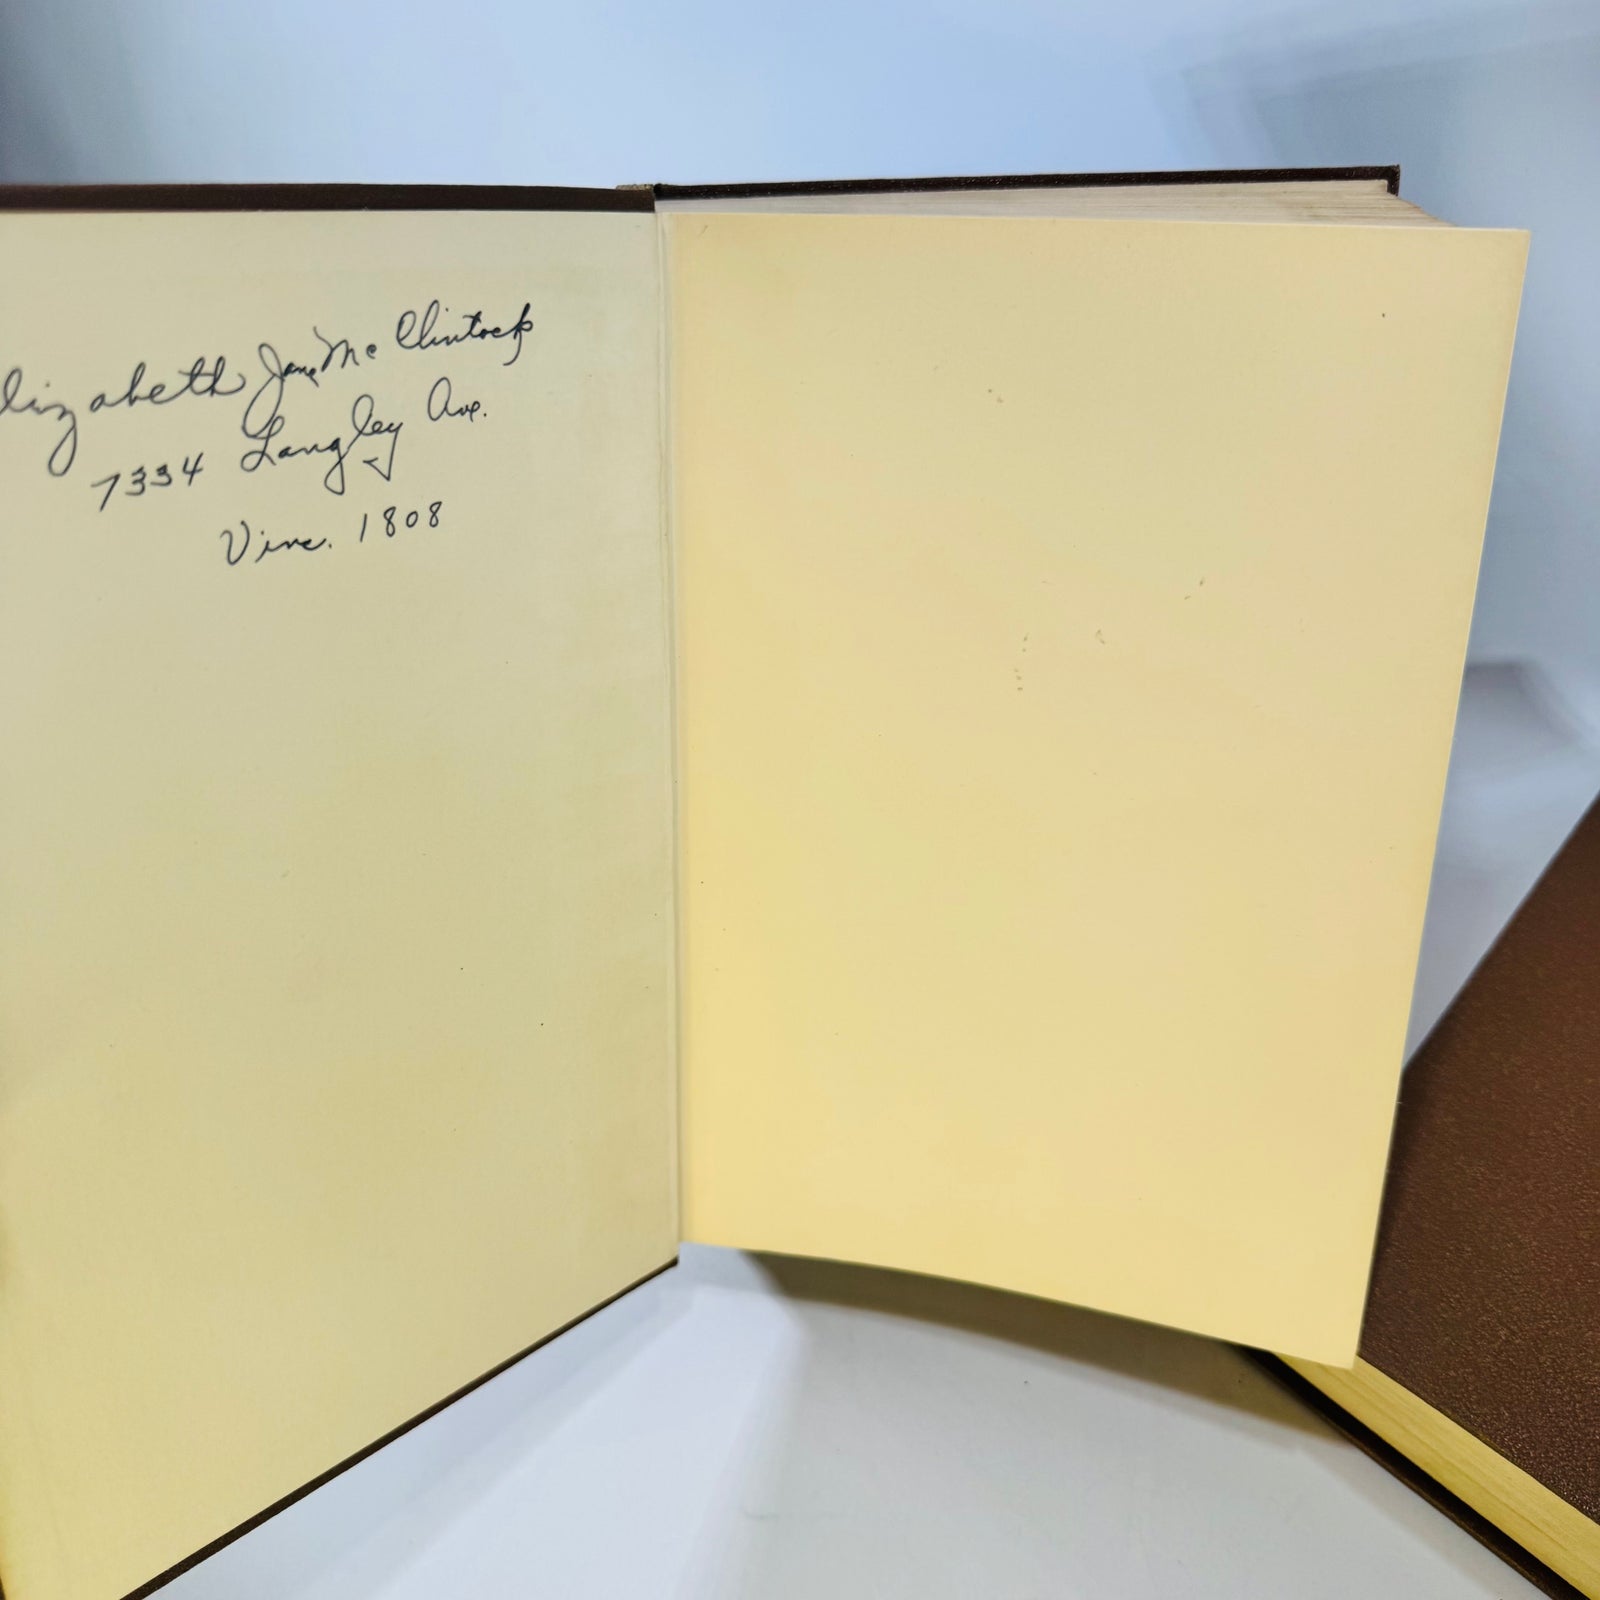 lizabeth Jane Mc Clintock
7334 Langley Ave.
Vinc. 1808